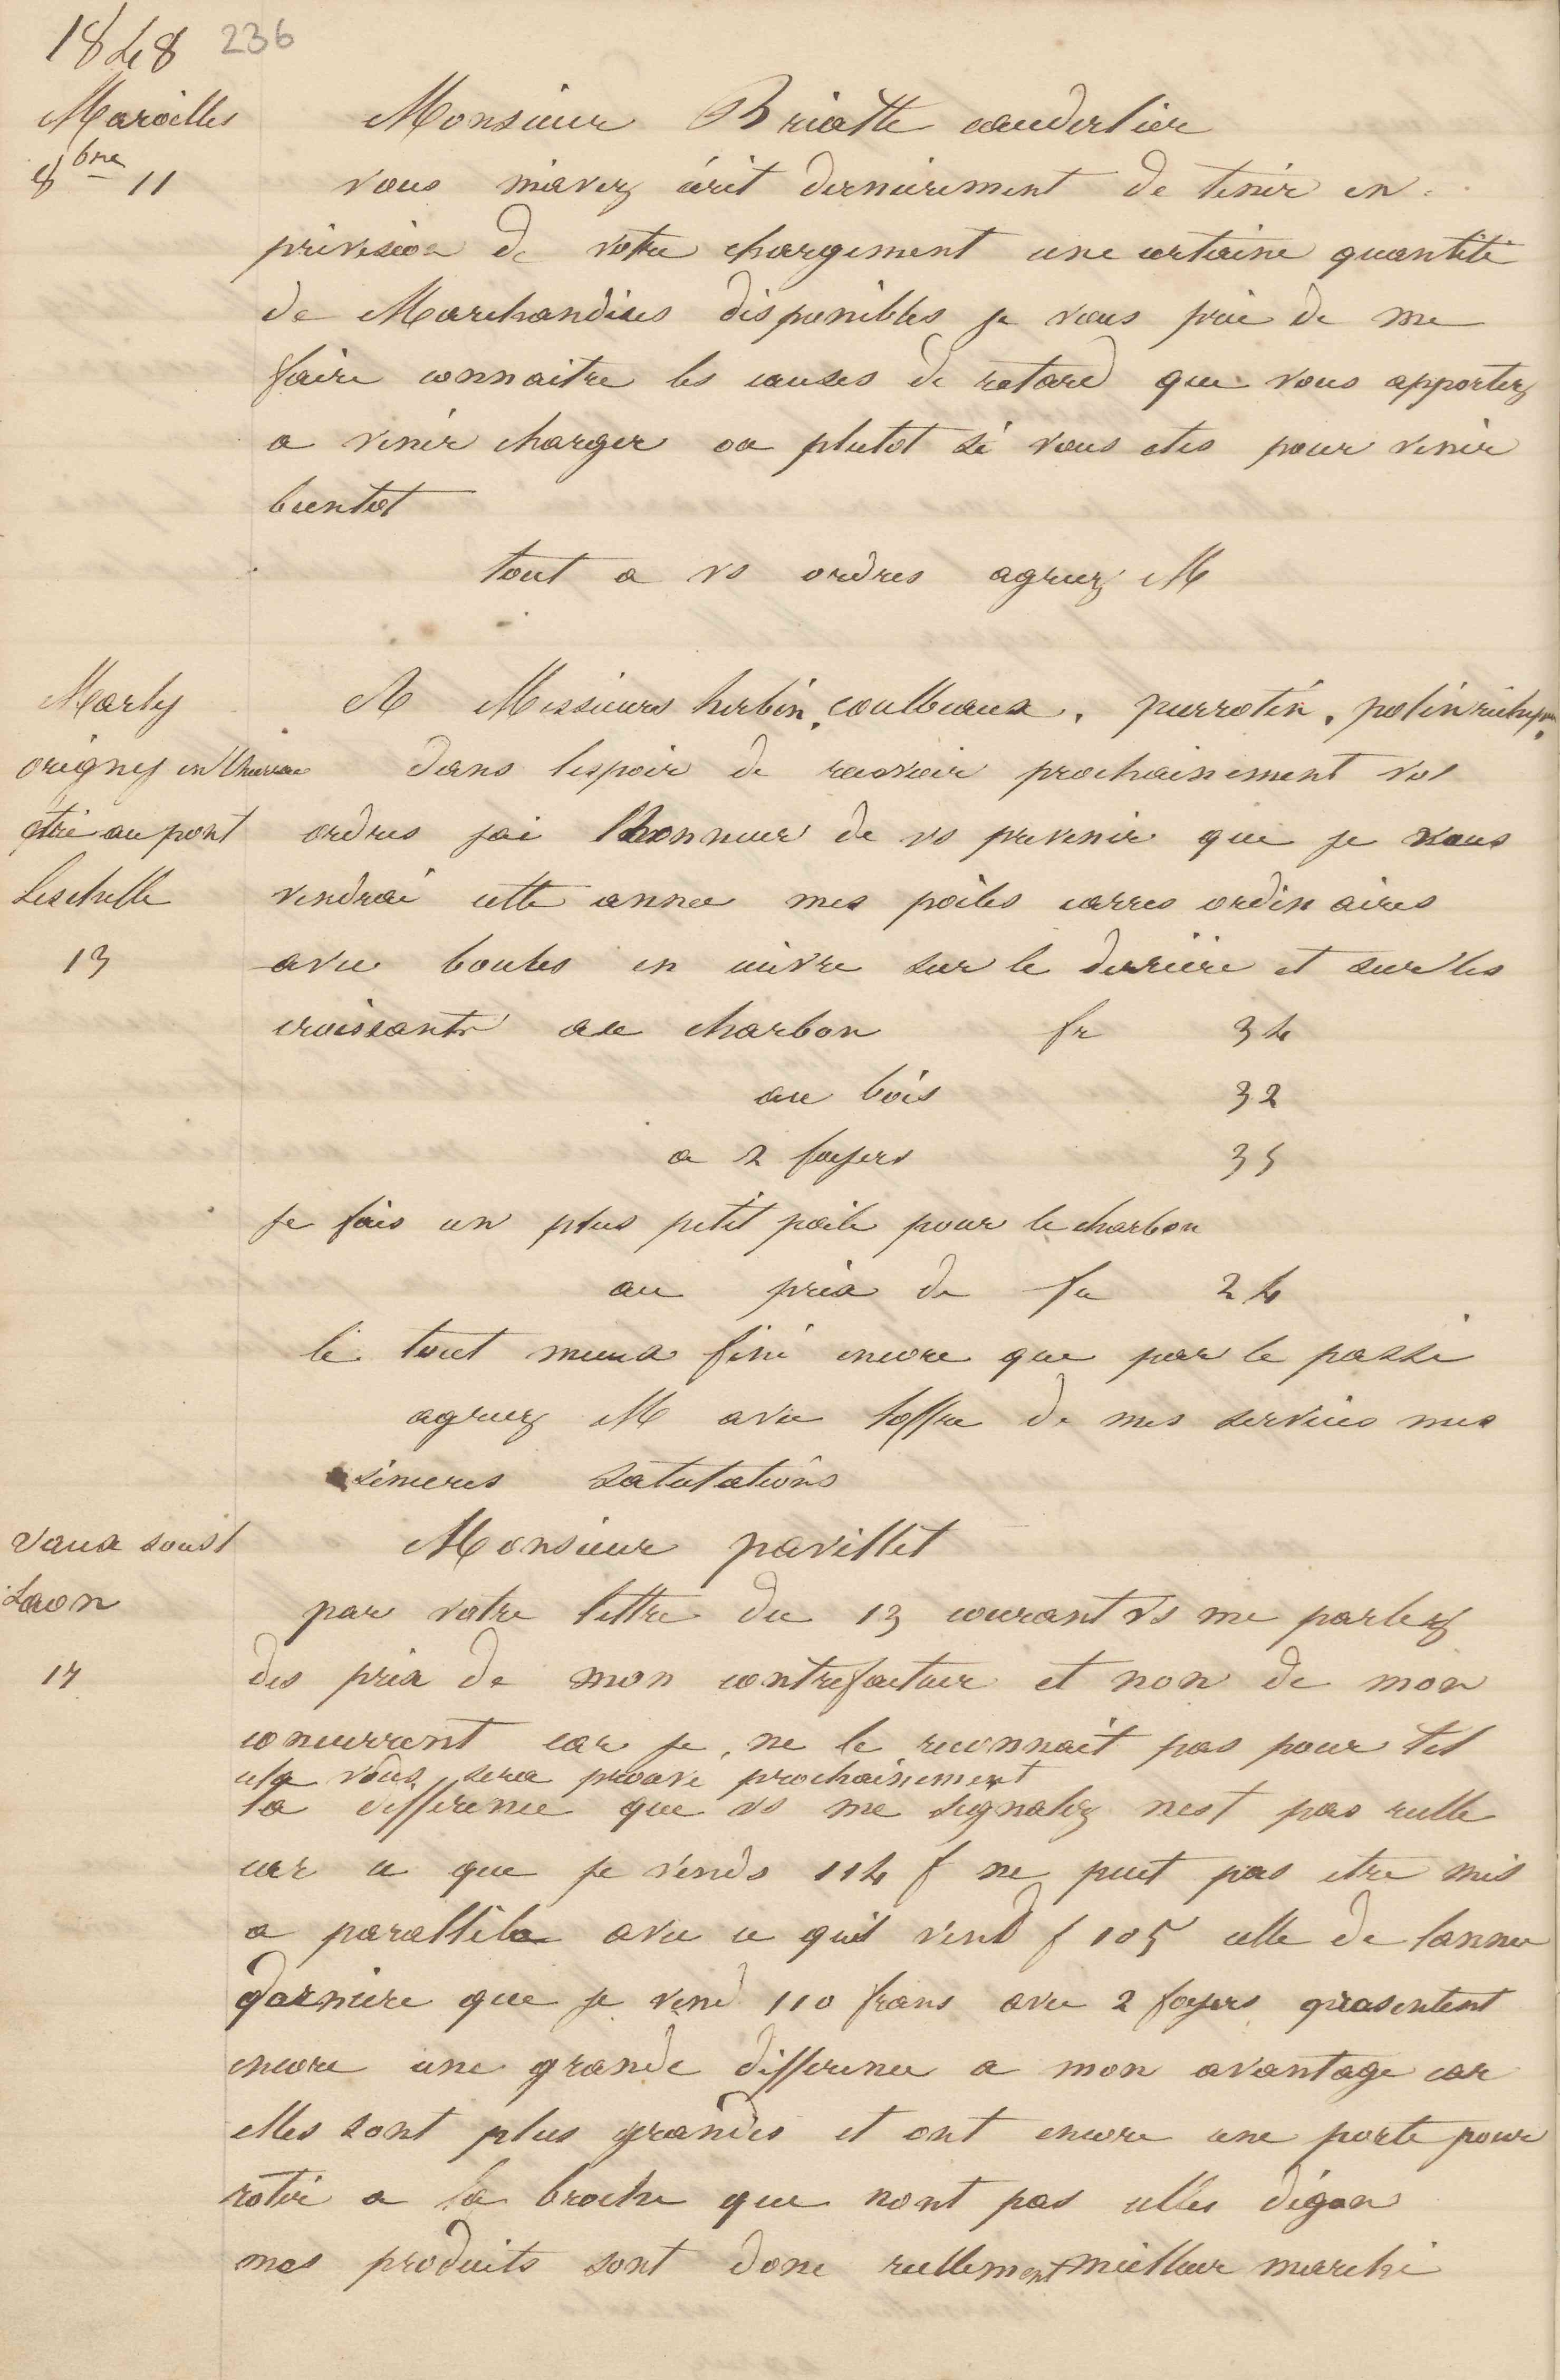 1848 236
Maroilles
8bre 11
Monsieur Briatte cauderlier
vous m'avez écrit dernierement de tenir en
prévision de votre chargement une certaine quantité
de Marchandises disponibles je vous prie de me
faire connaitre les causes de retard que vous apportez
a venir charger ou plutot si vous etes pour venir
bientot
tout a vs ordres agreez M
Marly
origny en thierache
étré au pont
Leschelle
13
A Messieurs herbin, coulbeaux, pierrotin, polin
dans lespoir de recevoir prochainement vos
ordres jai lhonneur de vs prevenir que je vous
vendrai cette annee mes poêles carres ordinaires
avec boules en cuivre sur le derrière et sur les
croissants au charbon fr 34
au bois 32
a 2 foyers 35
je fais un plus petit poele pour le charbon
au prix de fr 24
le tout mieux fini encore que par le passé
agreez M avec loffre de mes services mes
sinceres salutations
Vaux sous
Laon
17
Monsieur pavillet
par votre lettre du 13 courant vs me parlez
des prix de mon contrefacteur et non de mon
concurrent car je ne le reconnait pas pour tel
cela vous sera prouvé prochainement
la difference que vs me signalez nest pas reelle
car ce que je vends 114 f ne peut pas etre mis
a parallèle avec ce quil vend f 105 celle de lannee
derniere que je vend 110 francs avec 2 foyers presentent
encore une grande difference a mon avantage car
elles sont plus grandes et ont encore une porte pour
rotir a la broche que nont pas celles dégon
mes produits sont donc reellement meilleur marché